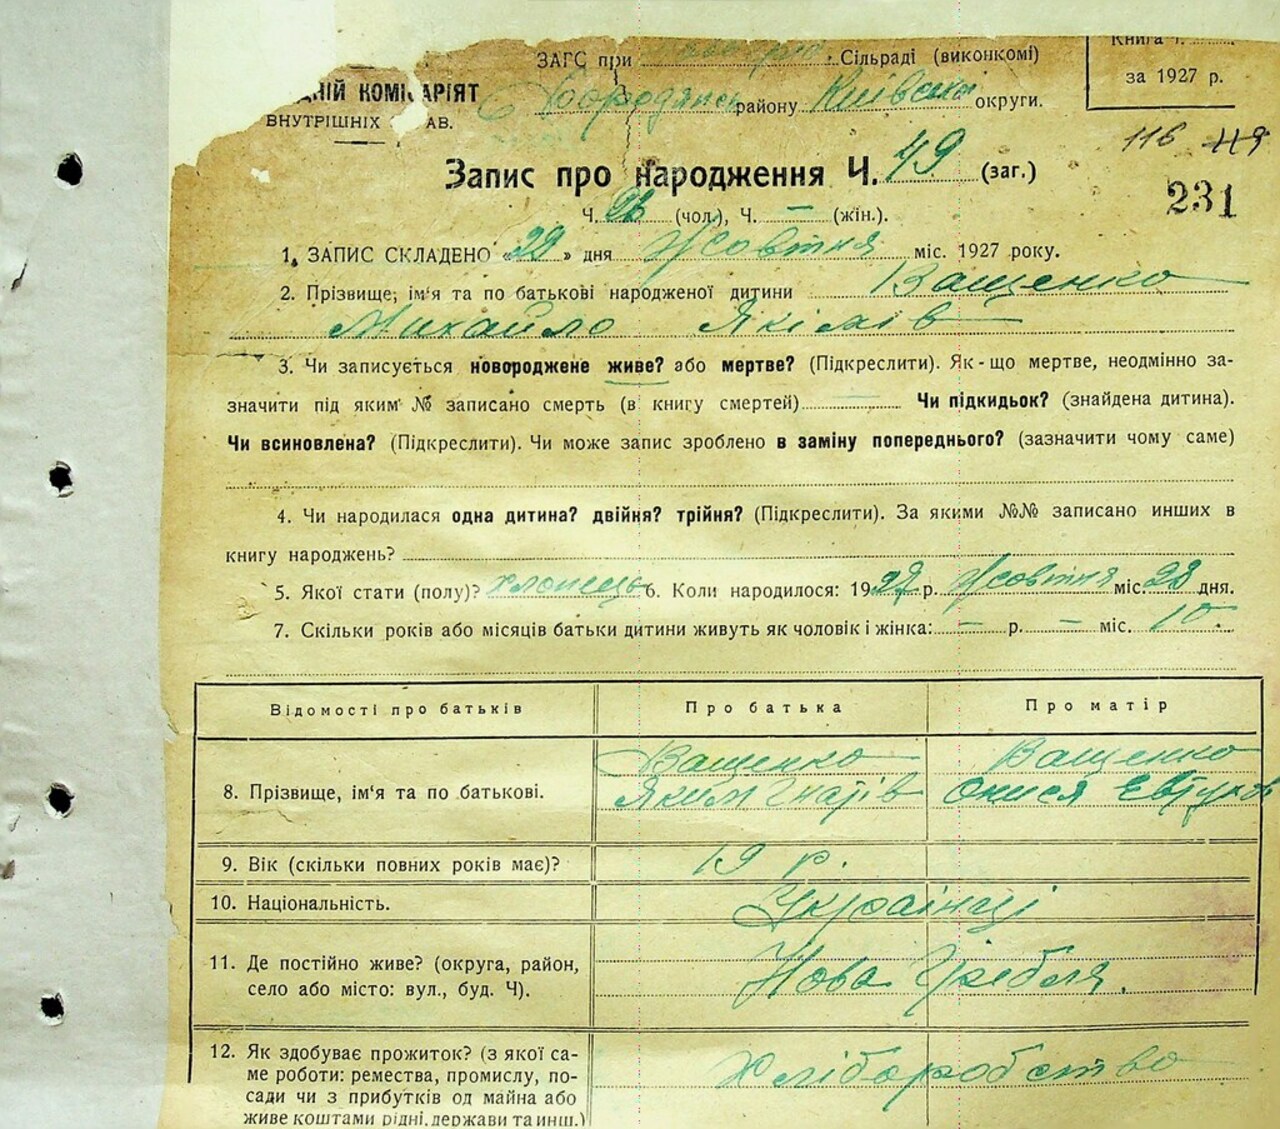 Книга Ч.
ЗАГС при Сільраді (виконкомі)
за 1927 р.
ДНІЙ КОМІСАРІЯТ
Бородянськ району Київськ округи.
ВНУТРІШНІХ АВ.
116 119
Запис про народження Ч. 49 (заг.)
231
Ч. 26 (чол.), Ч. — (жін.).
1. ЗАПИС СКЛАДЕНО «29» дня Жовтня міс. 1927 року.
2. Прізвище, ім'я та по батькові народженої дитини Ващенко
Михайло Якімів
3. Чи записується новороджене живе? або мертве? (Підкреслити). Як-що мертве, неодмінно за-
значити під яким № записано смерть (в книгу смертей) — Чи підкидьок? (знайдена дитина).
Чи всиновлена? (Підкреслити). Чи може запис зроблено в заміну попереднього? (зазначити чому саме)
4. Чи народилася одна дитина? двійня? трійня? (Підкреслити). За якими №№ записано инших в
книгу народжень?
5. Якої стати (полу)? хлопець 6. Коли народилося: 1927 р. Жовтня міс. 28 дня.
7. Скільки років або місяців батьки дитини живуть як чоловік і жінка: — р. — міс. 10
Відомості про батьків Про батька Про матір
8. Прізвище, ім'я та по батькові. Ващенко Яким Гнатів Ващенко Онися Евтухов
9. Вік (скільки повних років має)? 19 р.
10. Національність. Українці
11. Де постійно живе? (округа, район,
село або місто: вул., буд. Ч). Нова Гребля.
12. Як здобуває прожиток? (з якої са-
ме роботи: ремества, промислу, по-
сади чи з прибутків од майна або
живе коштами рідні, держави та инш.) Хліборобство